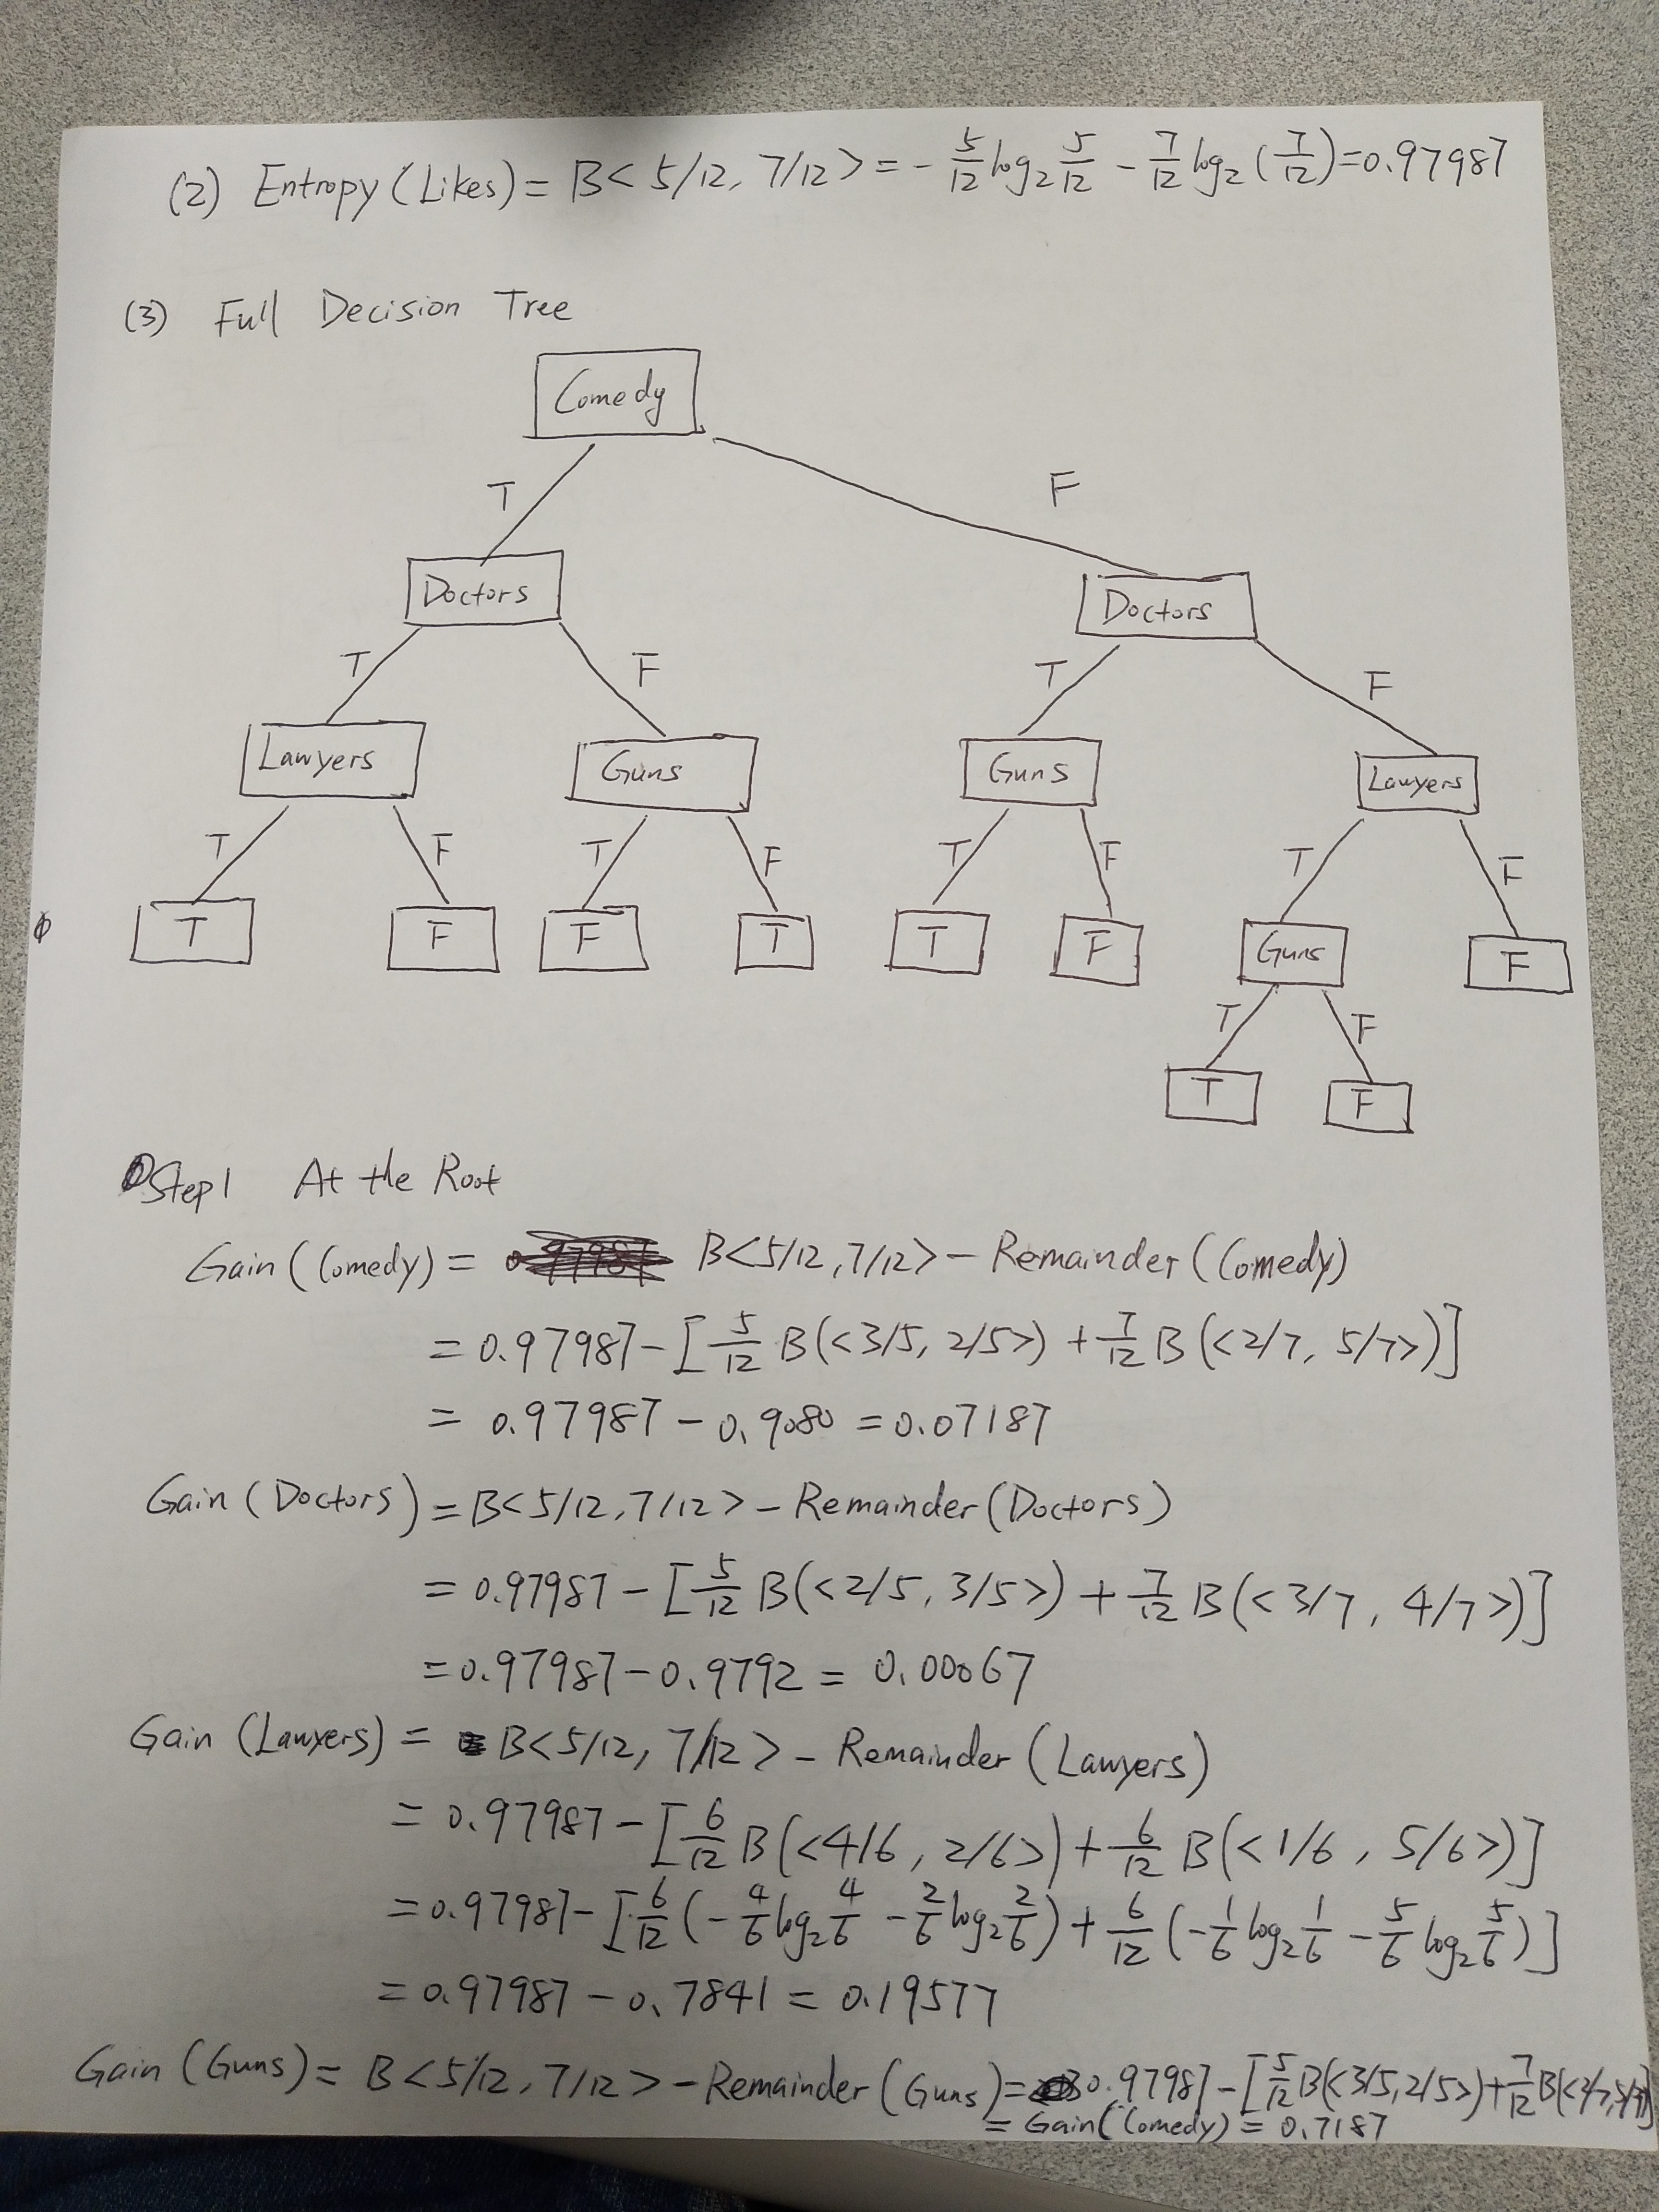 (2) Entropy (Likes) = B< 5/12, 7/12 > = - 5/12 log2 5/12 - 7/12 log2 (7/12) = 0.97987
(3) Full Decision Tree
Comedy
T F
Doctors Doctors
T F T F
Lawyers Guns Guns Lawyers
T F T F T F T F
T F F T T F Guns F
T F
T F
Step1 At the Root
Gain (Comedy) = B<5/12, 7/12> - Remainder (Comedy)
= 0.97987 - [5/12 B(<3/5, 2/5>) + 7/12 B(<2/7, 5/7>)]
= 0.97987 - 0.9080 = 0.07187
Gain (Doctors) = B<5/12, 7/12> - Remainder (Doctors)
= 0.97987 - [5/12 B(<2/5, 3/5>) + 7/12 B(<3/7, 4/7>)]
= 0.97987 - 0.9792 = 0.00067
Gain (Lawyers) = B<5/12, 7/12> - Remainder (Lawyers)
= 0.97987 - [6/12 B(<4/6, 2/6>) + 6/12 B(<1/6, 5/6>)]
= 0.97987 - [6/12 (- 4/6 log2 4/6 - 2/6 log2 2/6) + 6/12 (- 1/6 log2 1/6 - 5/6 log2 5/6)]
= 0.97987 - 0.7841 = 0.19577
Gain (Guns) = B<5/12, 7/12> - Remainder (Guns) = 0.97987 - [5/12 B(<3/5, 2/5>) + 7/12 B(<2/7, 5/7>)]
= Gain (Comedy) = 0.7187